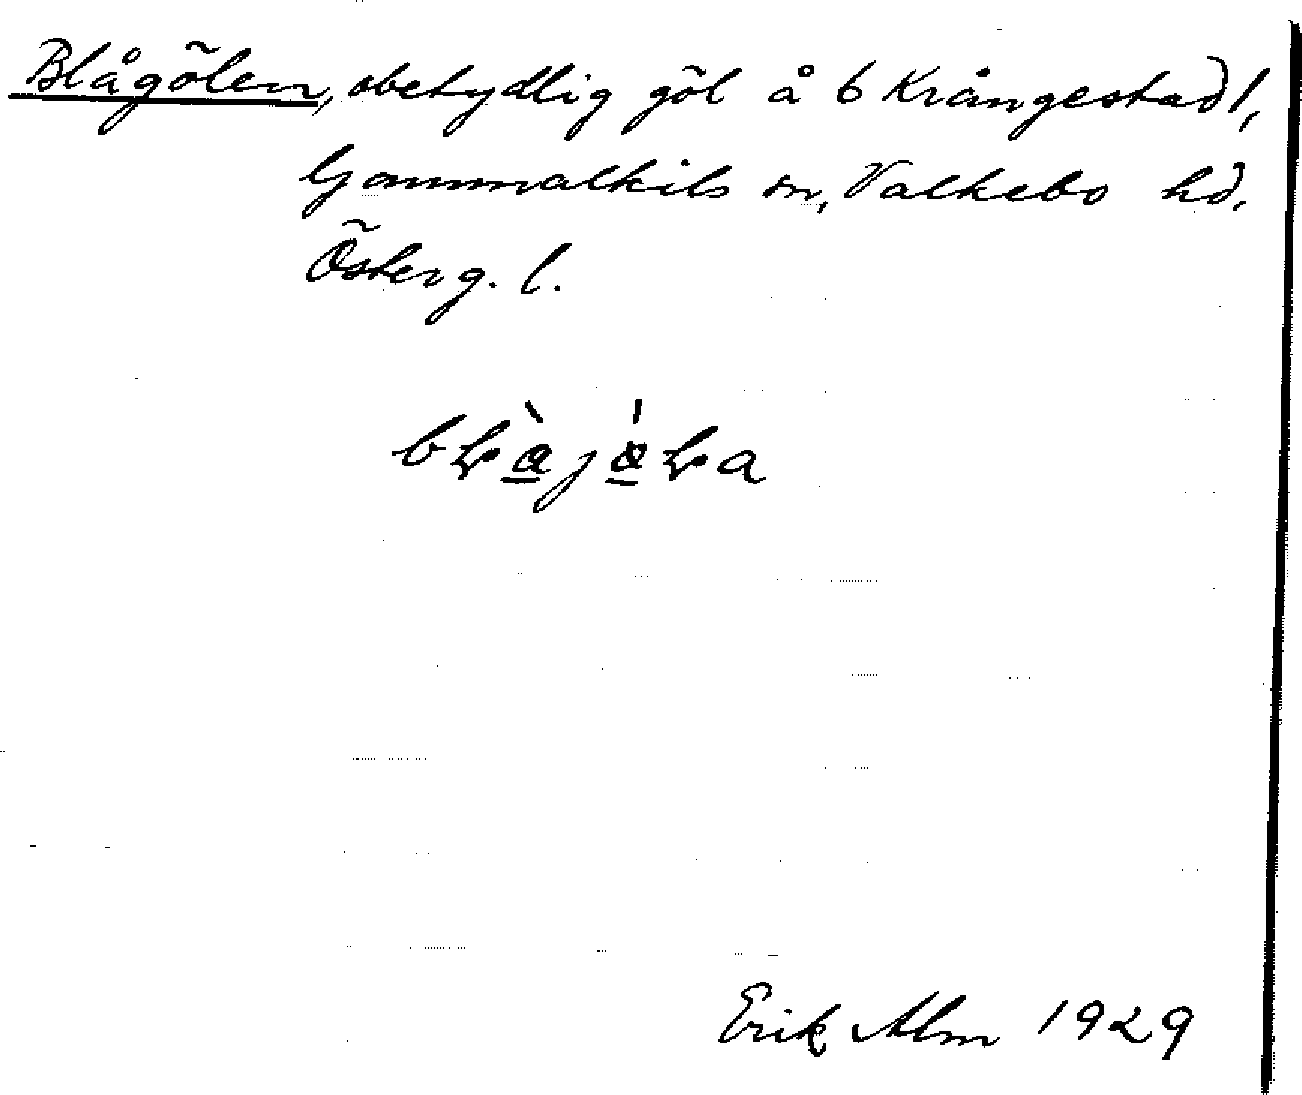 Blågölen, obetydlig göl å 6 Krångestad,
Gammalkils sn, Valkebo hd.
Österg. l.
Erik Alm 1929